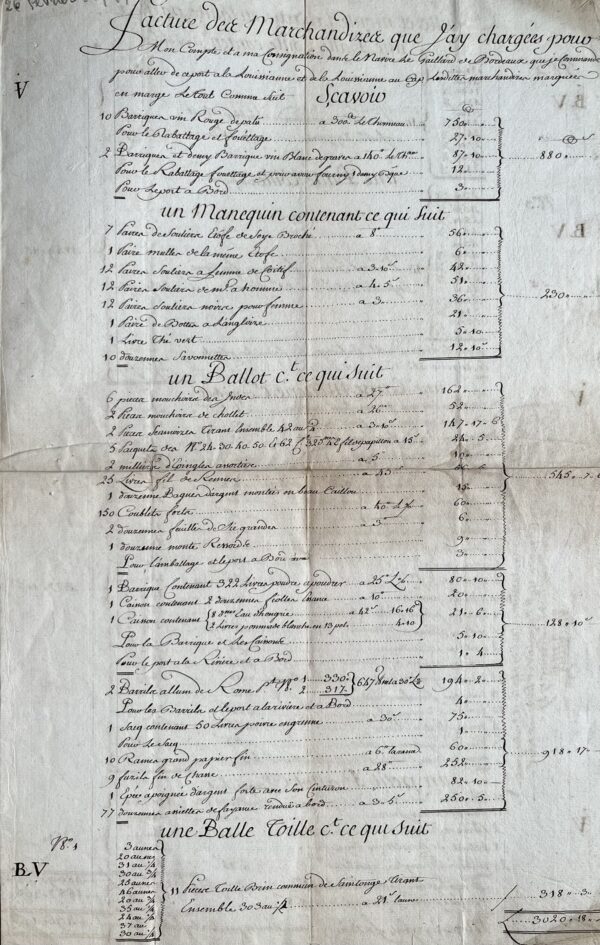 26 février
Facture des Marchandizes que J'ay chargées pour
Mon Compte et a ma Consignation dans le Navire Le Gaillard de Bordeaux que je Commande
pour aller de a port a la Louisianne et de la Louisianne au Cap Lesdittes marchandises marquées
V en marge Le tout Comme Suit Scavoir
10 Barriques vin Rouge de palu a 300# Le thonneau 750
Pour le Rabattage et fouettage 27.10
2 Barriques et demy Barrique vin Blanc de graves a 140# Le Thau 87.10 880
Pour le Rabattage fouettage et pour avoir fourny 1 demy Bque 12
Pour Le port a Bord 3
un Manequin contenant ce qui Suit
7 Paires de Souliers Etofe de Soye Broché a 8# 56
1 Paire mulles de la même Etofe 6
12 Paires Souliers a femme de a 3.10s 42
12 Paires Souliers de a homme a 4.5s 51
12 Paires Souliers noirs pour femme a 3 36 230
1 Paire de Bottes a Langloise 21
1 Livre Thé vert 5.10
10 douzennes Savonnettes 12.10s
un Ballot ct ce qui suit
6 pieces mouchoirs des Indes a 27# 162
2 Pieces mouchoirs de chollet a 26# 52
2 Pieces Siamoises tirant Ensemble 42 au a 3.10s 147.17.6
5 Paquets des No 24.30.40.50 et 62 a 15s 24.5
2 milliers d'Epingles a 5 10
25 Livres fil de Rennes
1 douzenne Bagues d'argent montées en beau Caillou 15 545.7.6
150 Couplets forts a 40# 60
2 douzennes feuilles de Sie grandes a 3# 6
1 douzenne monte Ressorts 9
Pour L'amballage et le port a Bord 3
1 Barrique Contenant 322 Livres poudre a poudrer a 25# 80.10
1 Caisson contenant 2 douzennes fiolles a 10# 20
1 Caisson contenant 8 Eau d'hongrie a 42s 16.16 21.6
2 Livres pommade blanche en 13 pots 4.10 128.10s
Pour La Barrique et Les Caissons 5.10
Pour Le port a la Riviere et a Bord 1.4
2 Barrils allum de Rome Pt No 1 330 647 a 30# 194.2
2 317
Pour les Barrils et le port a la riviere et a Bord 4
1 Sacq contenant 50 Livres poivre en grenne a 30s 75
Pour Le Sacq 1
10 Rames grand papier fin a 6# la rame 60 918.17
9 fuzils fin de Chasse a 28# 252
1 Epée a poignée d'argent forte avec Son Cinturon 82.10
77 douzennes assiettes de fayance rendues a bord a 3.5s 250.5
une Balle Toille ct ce qui suit
No 1
BV
3 aunes
20 aunes
31 au 1/4
30 au 3/4
25 aunes
46 aunes
20 au 3/4
35 au 1/4
24 au 3/4
37 au
30 au 1/4
11 Pieces Toille Brin commun de Saintonge Tirant
Ensemble 303 au 1/4 a 21s l'aune 318.3
3020.18